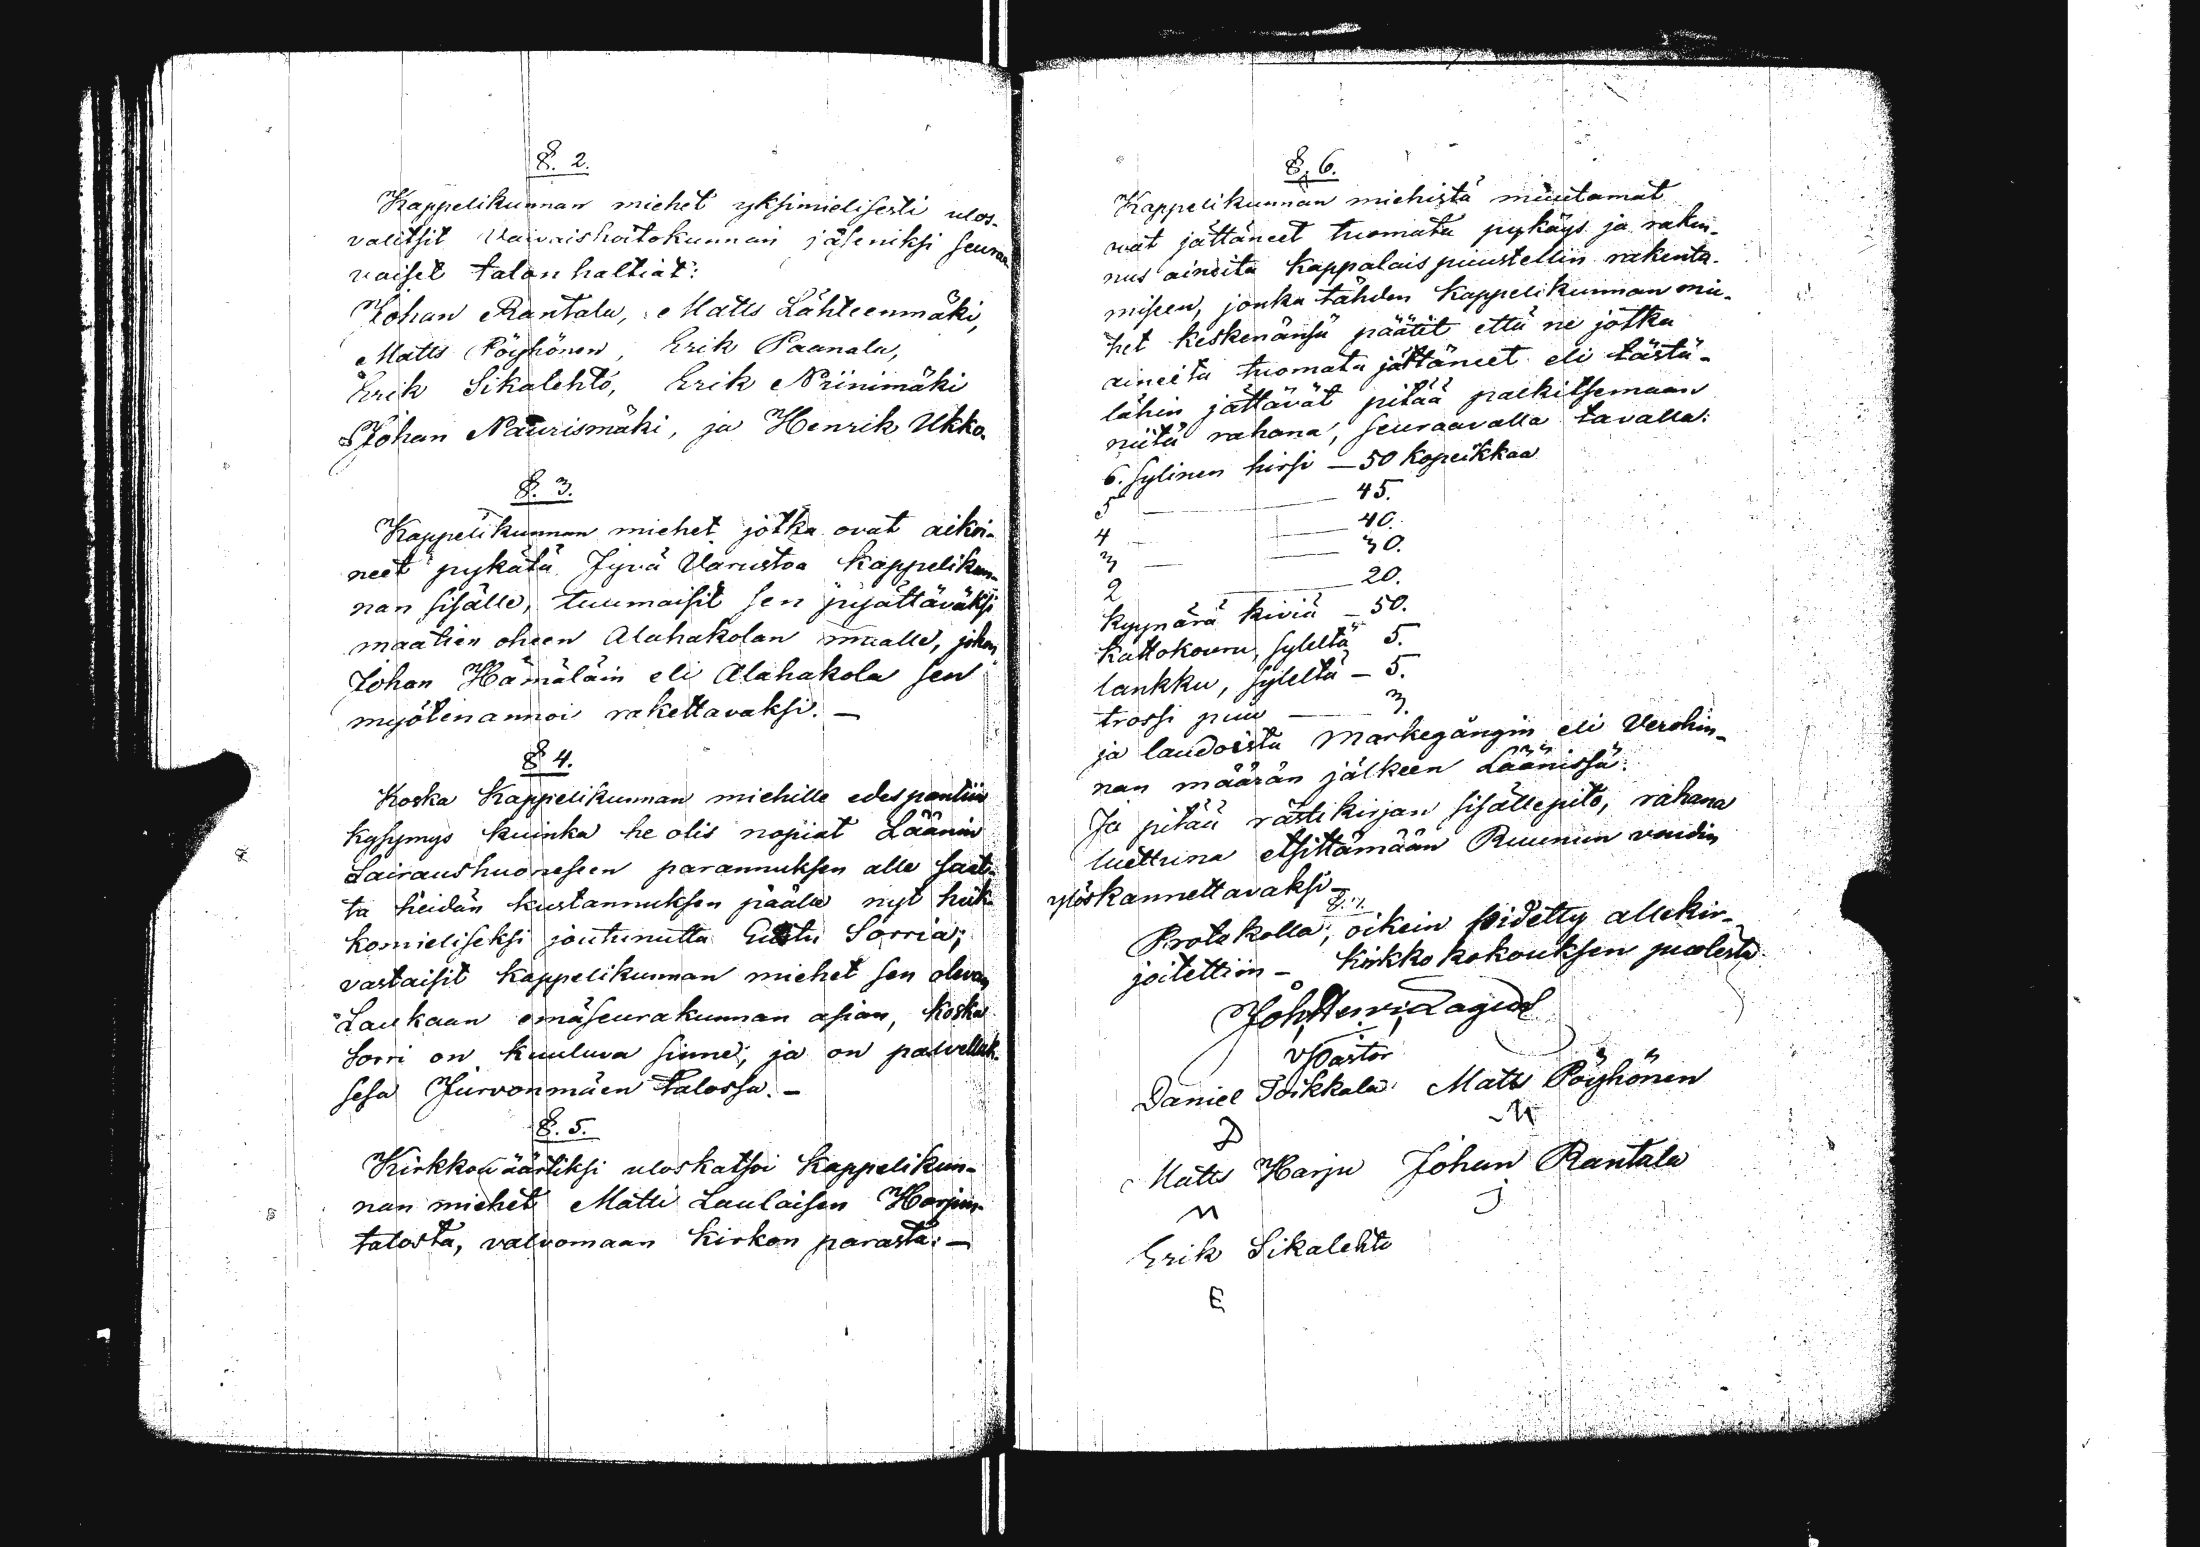 §. 2.
Kappelikunnan miehet yksimielisesti ulos-
valitsit Vaivaishoitokunnan jäseniksi seuraa
vaiset talon haltiat:
Johan Rantala, Matts Lähteenmäki,
Matts Pöyhönen, Erik Paanala,
Erik Sikalehto, Erik Niinimäki
Johan Naurismäki, ja Henrik Ukko.
§. 3.
Kappelikunnan miehet jotka ovat aikoi-
neet pykätä Jyvä Varustoa Kappelikun-
nan sisälle, tuumaisit sen pysättäväksi
maatien oheen Alahakolan maalle, johon
Johan Hämäläin eli Alahakola sen
myötenannoi rakettavaksi. —
§ 4.
Koska Kappelikunnan miehille edespantiin
kysymys kuinka he olis nopiat Läänin
Lairaushuoneseen parannuksen alle saat-
ta heidän kustannuksen päälle nyt heik-
komieliseksi joutunutta Sorria;
vastaisit kappelikunnan miehet sen olevan
Laukaan emäseurakunnan asian, koska
Sorri on kuuluva sinne, ja on palvelluk-
sesa Jurvonmäen talossa. —
§. 5.
Kirkkowäärtiksi uloskatsoi Kappelikun-
nan miehet Matti Laulaisen Harjun
talosta, valvomaan Kirkon parasta. —
§. 6.
Kappelikunnan miehistä muutamat
wat jättäneet tuomata pykäys ja raken-
nus aineita Kappalais puustellin rakenta-
miseen, jonka tähden Kappelikunnan mie-
het keskenänsä päätit että ne jotka
aineita tuomata jättäneet eli tästä-
lähin jättävät pitää palkitsemaan
niitä rahana, seuraavalla tavalla:
6. sylinen hirsi — 50 kopeikkaa
5 — — 45.
4 — — 40.
3 — — 30.
2 — 20.
kyynärä kiviä — 50.
kattokouru, syleltä 5.
lankku, syleltä — 5.
trossi puu — 3.
ja laudoista Markegångin eli Verohin-
nan määrän jälkeen Läänissä.
Ja pitää rästikirjan sisällepito, rahana
luettuna etsittämään Ruunun voudin
ylöskannettavaksi —
§. 7.
Protokolla, oikein pidetty allekir-
joitettiin — Kirkko kokouksen puolesta
Joh. Henr. Lagus
v Pastor
Daniel Toikkala Matts Pöyhönen
D M
Matts Harju Johan Rantala
M J
Erik Sikalehto
E